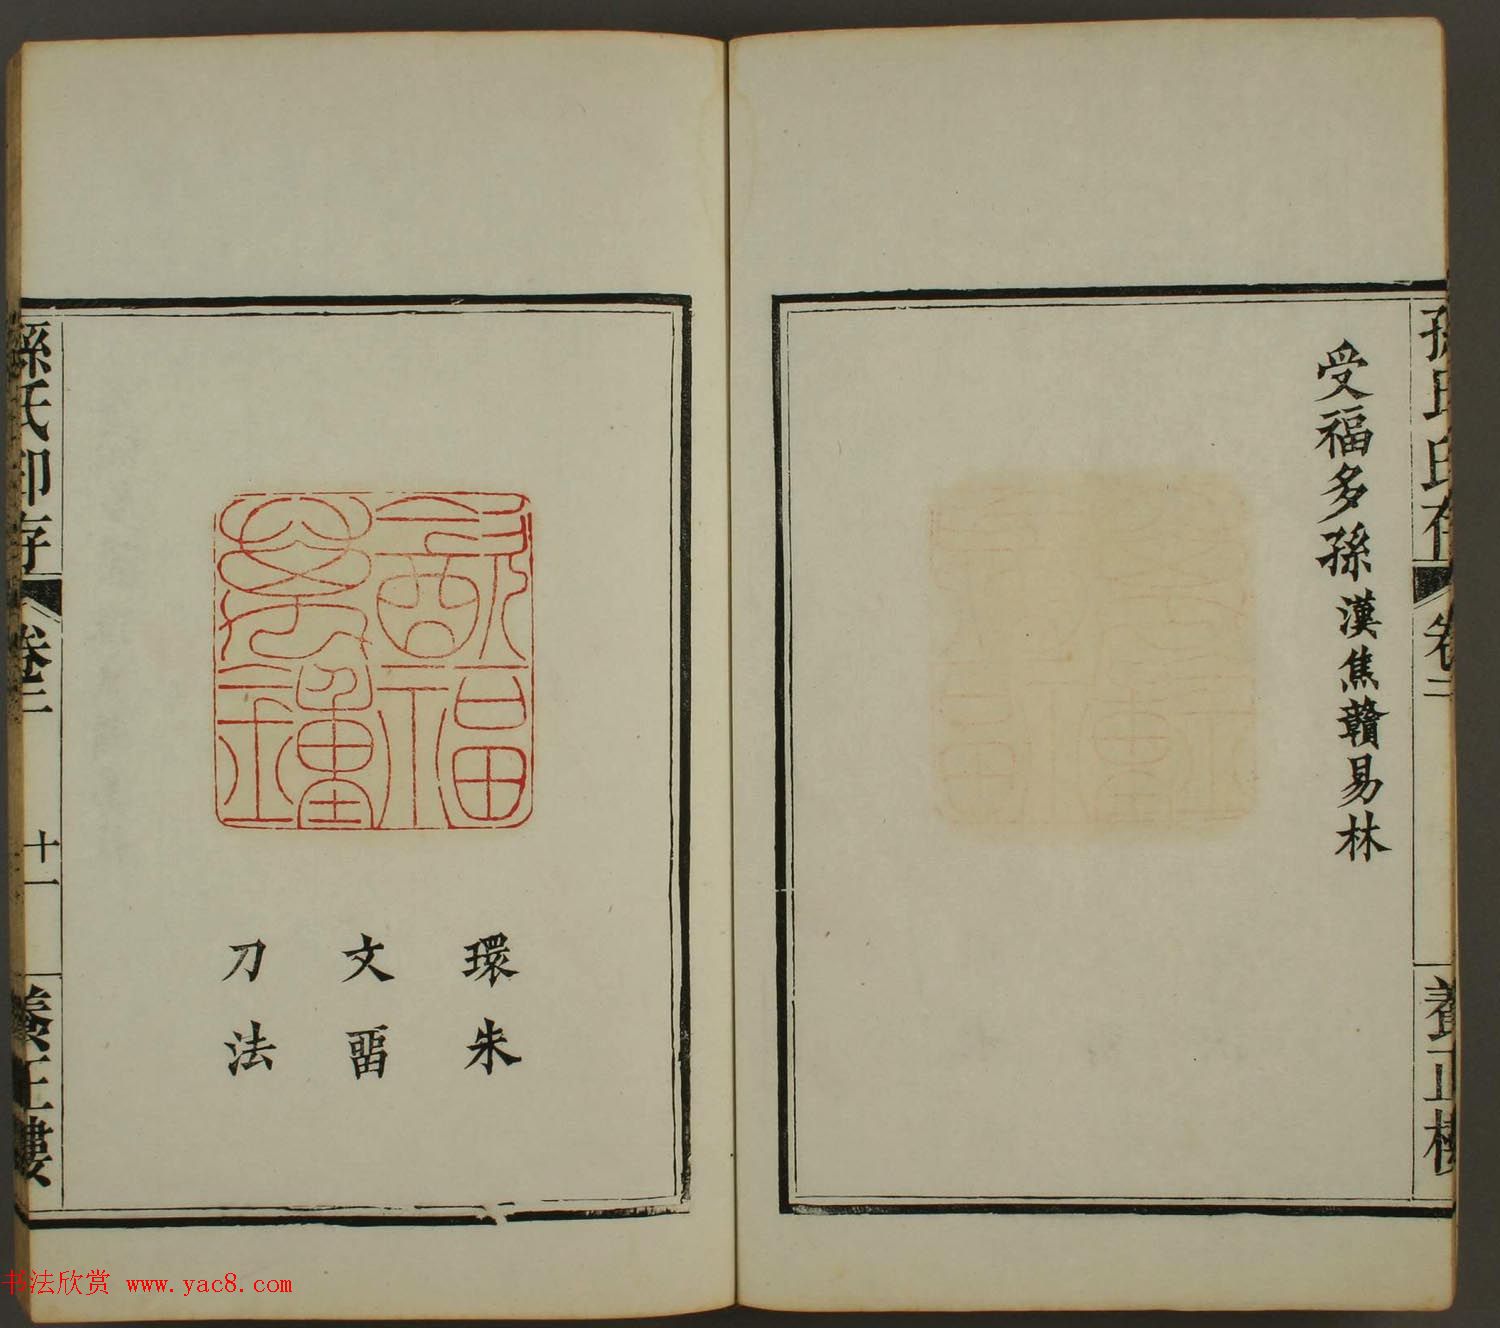 孫氏印存 卷二 養正樓
受福多孫 漢焦贛易林
㱃福
萬鍾
環朱
文畱
刀法
孫氏印存 卷二 十一 養正樓
书法欣赏 www.yac8.com